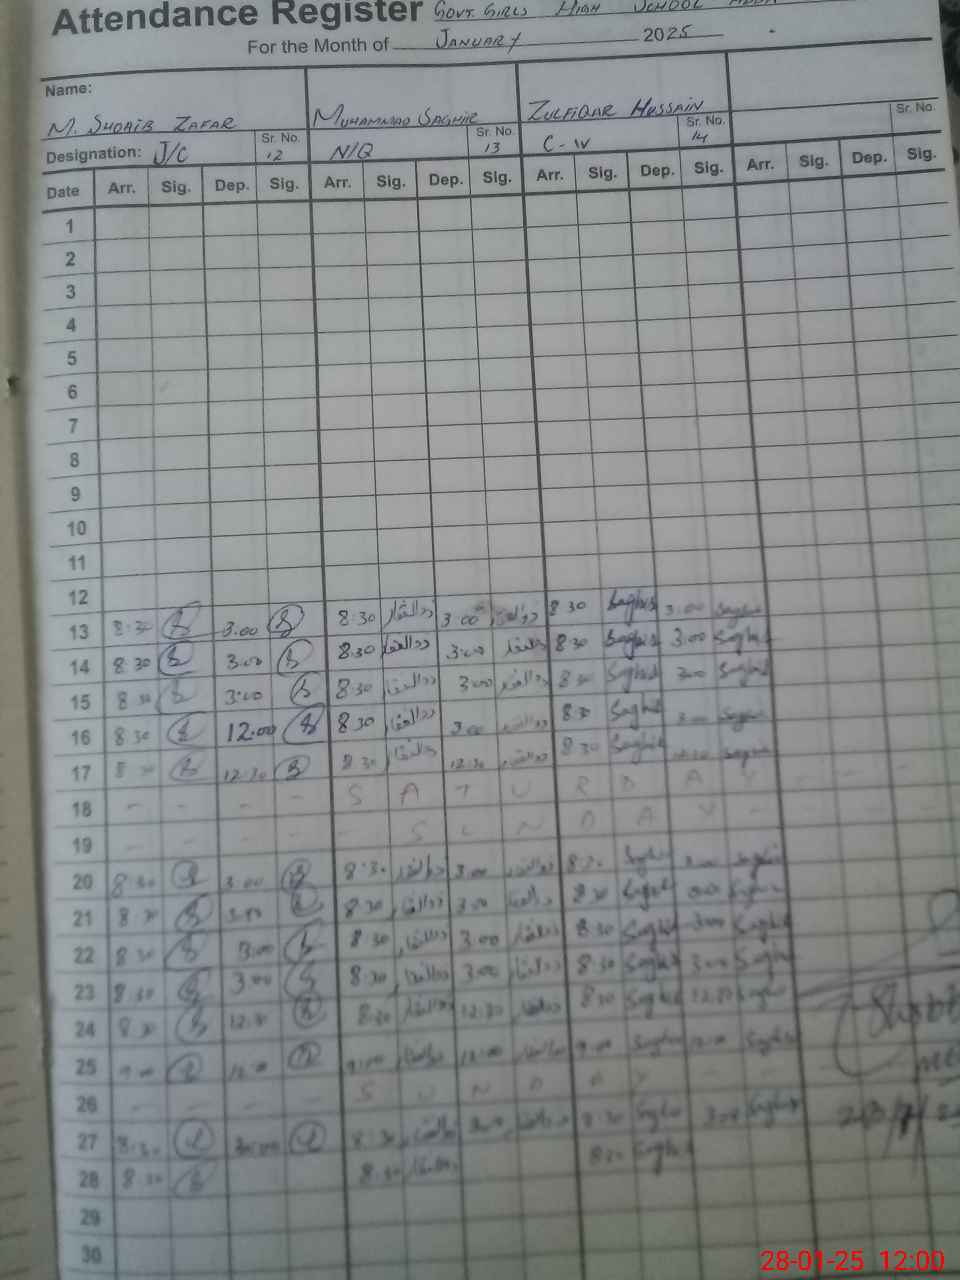 Attendance Register GOVT. GIRLS HIGH SCHOOL
For the Month of JANUARY 2025
Name:
M. SHOAIB ZAFAR MUHAMMAD SAGHIR ZULFIQAR HUSSAIN
Sr. No. Sr. No. Sr. No. Sr. No.
Designation: J/C 12 N/Q 13 C-IV 14
Date Arr. Sig. Dep. Sig. Arr. Sig. Dep. Sig. Arr. Sig. Dep. Sig. Arr. Sig. Dep. Sig.
1
2
3
4
5
6
7
8
9
10
11
12
13 8:30 3.00 8:30 ذوالفقار 3.00 ذوالفقار 8 30 Saghir 3.00 Saghir
14 8 30 3.00 8:30 ذوالفقار 3.00 ذوالفقار 8 30 Saghir 3.00 Saghir
15 8 30 3.00 8 30 ذوالفقار 3.00 ذوالفقار 8 30 Saghir 3.00 Saghir
16 8 30 12.00 8 30 ذوالفقار 3.00 ذوالفقار 8 30 Saghir 3.00 Saghir
17 8 30 12.30 8 30 ذوالفقار 12.30 ذوالفقار 8 30 Saghir Saghir
18 - - - - S A T U R D A Y - - -
19 - - - - - S U N D A Y - -
20 8 30 3.00 8:30 ذوالفقار 3.00 ذوالفقار 8:30 Saghir 3.00 Saghir
21 8 30 3.00 8 30 ذوالفقار 3.00 ذوالفقار 8 30 Saghir 3.00 Saghir
22 8 30 3.00 8 30 ذوالفقار 3.00 ذوالفقار 8 30 Saghir 3.00 Saghir
23 8 30 3.00 8 30 ذوالفقار 3.00 ذوالفقار 8 30 Saghir 3.00 Saghir
24 8 30 12.30 8:30 ذوالفقار 12.30 ذوالفقار 8 30 Saghir 12.30 Saghir
25 9.00 12.00 9.00 ذوالفقار 12.00 ذوالفقار 9.00 Saghir 12.00 Saghir
26 - - - - S U N D A Y - -
27 8:30 8:30 ذوالفقار 3.00 ذوالفقار 8:30 Saghir 3.00 Saghir
28 8 30 8.30 ذوالفقار 8:30 Saghir
29
30
28-01-25 12:00